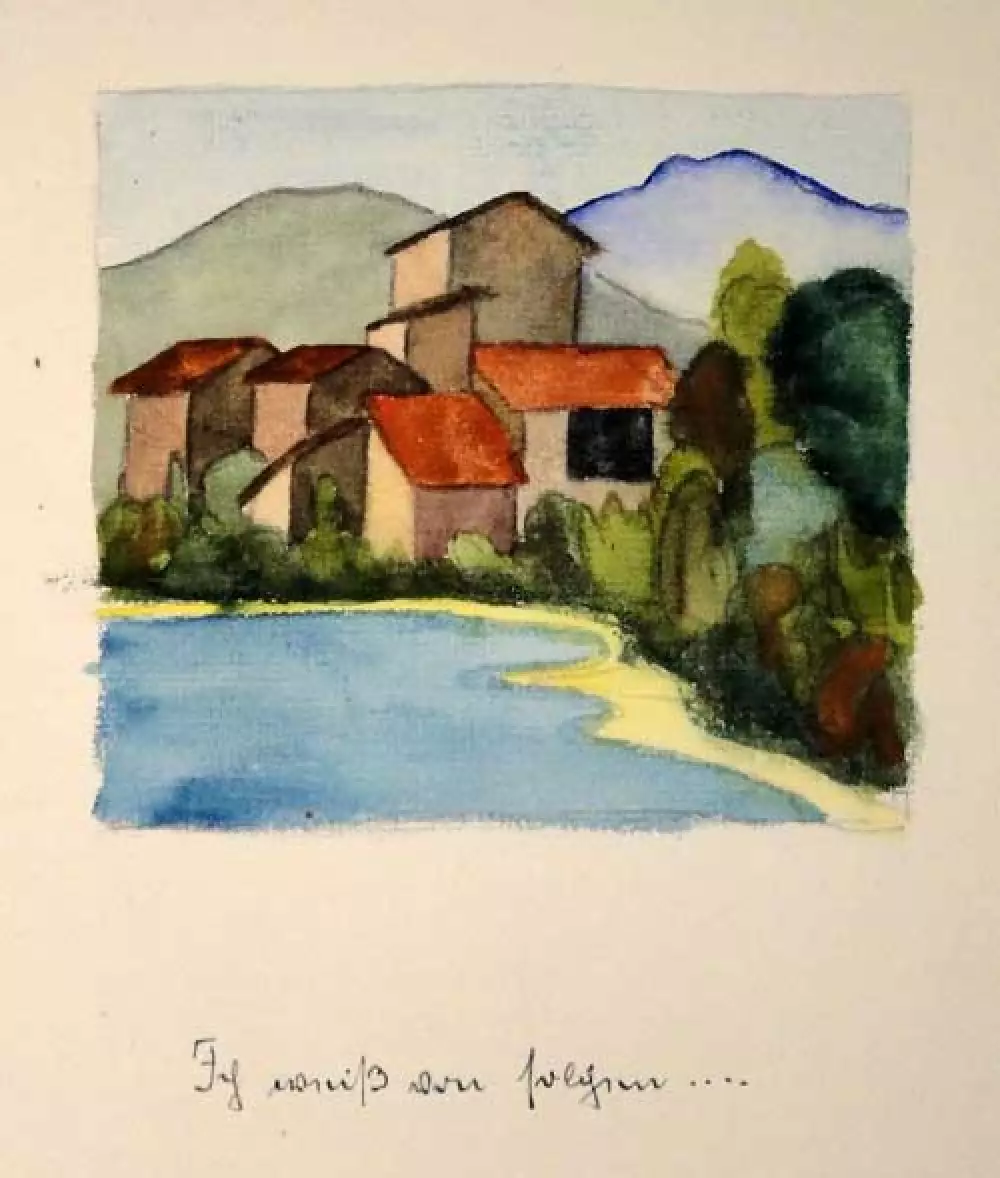 Ich weiß von solchen ....